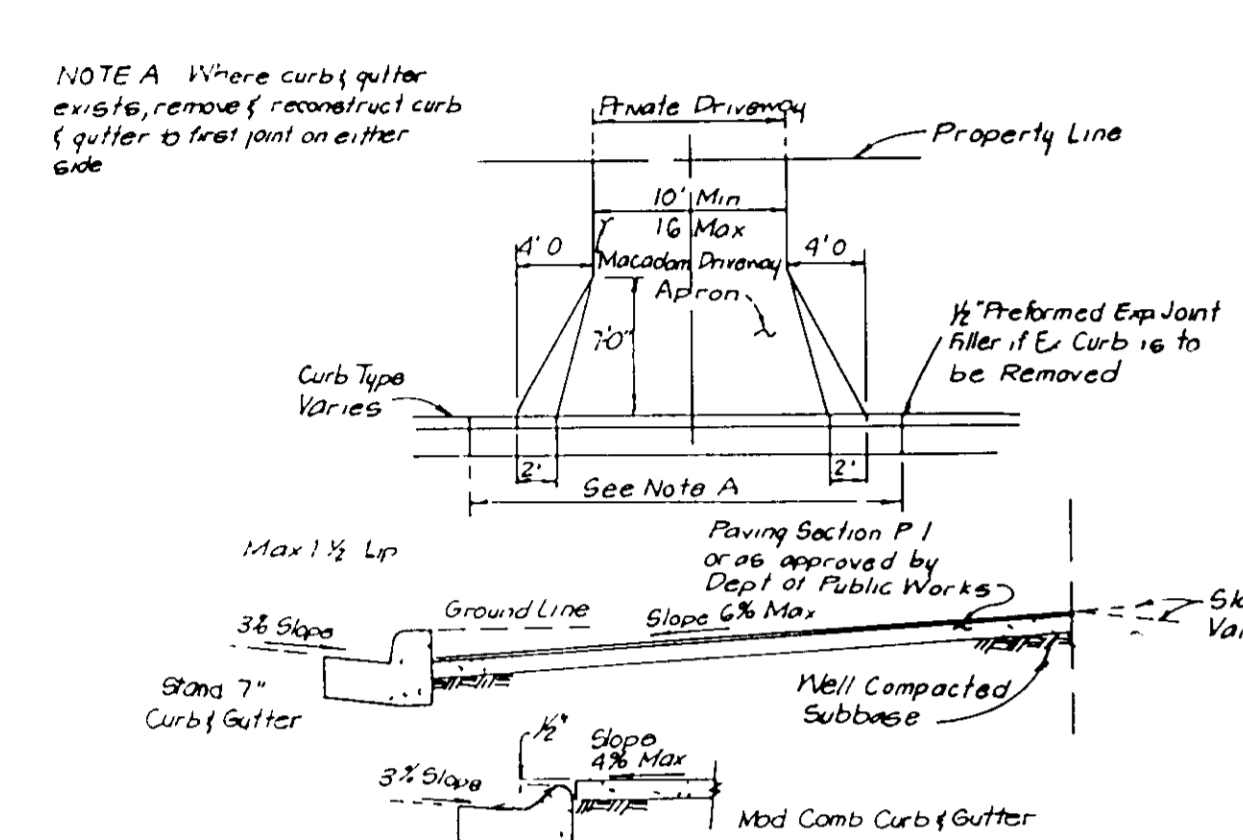 NOTE A Where curb & gutter
exists, remove & reconstruct curb
& gutter to first joint on either
side
Private Driveway
Property Line
10' Min
16 Max
4'0
4'0
Macadam Driveway
Apron
7'0"
1/2" Preformed Exp Joint
Filler if Ex Curb is to
be Removed
Curb Type
Varies
2'
2'
See Note A
Max 1 1/2 Lip
Paving Section P 1
or as approved by
Dept of Public Works
Ground Line
Slope 6% Max
3% Slope
Stand 7"
Curb & Gutter
Well Compacted
Subbase
1/2"
Slope
4% Max
3% Slope
Mod Comb Curb & Gutter